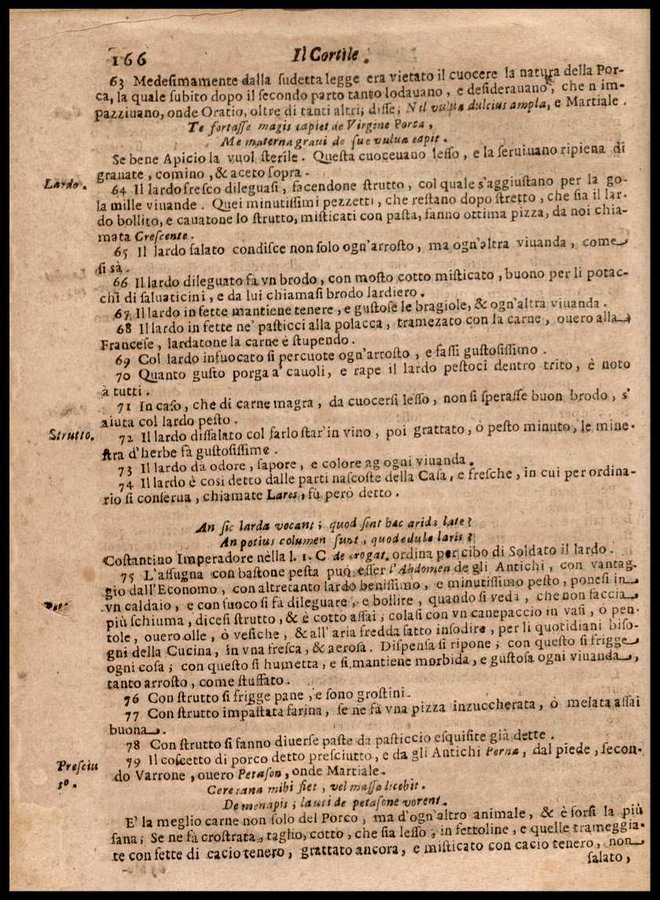 166
Il Cortile.
63 Medesimamente dalla sudetta legge era vietato il cuocere la natura della Por-
ca, la quale subito dopo il secondo parto tanto lodauano, e desiderauano, che n im-
pazziuano, onde Oratio, oltre di tanti altri, disse, Nil vulua dulcius ampla, e Martiale.
Te fortasse magis capiet de Virgine Porca,
Me materna graui de sue vulua capit.
Se bene Apicio la vuol sterile. Questa cuoceuano lesso, e la seruiuano ripiena di
granate, comino, & aceto sopra.
Lardo.
64 Il lardo fresco dileguasi, facendone strutto, col quale s'aggiustano per la go-
la mille viuande. Quei minutissimi pezzetti, che restano dopo stretto, che sia il lar-
do bollito, e cauatone lo strutto, misticati con pasta, fanno ottima pizza, da noi chia-
mata Crescente.
65 Il lardo salato condisce non solo ogn'arrosto, ma ogn'altra viuanda, come
si sà.
66 Il lardo dileguato fa vn brodo, con mosto cotto misticato, buono per li potac-
chi di saluaticini, e da lui chiamasi brodo lardiero.
67 Il lardo in fette mantiene tenere, e gustose le bragiole, & ogn'altra viuanda.
68 Il lardo in fette ne' pasticci alla polacca, tramezato con la carne, ouero alla
Francese, lardatone la carne è stupendo.
69 Col lardo infuocato si percuote ogn'arrosto, e fassi gustosissimo.
70 Quanto gusto porga a' cauoli, e rape il lardo pestoci dentro trito, è noto
à tutti.
71 In caso, che di carne magra, da cuocersi lesso, non si sperasse buon brodo, s'
aiuta col lardo pesto.
Strutto.
72 Il lardo dissalato col farlo star' in vino, poi grattato, ò pesto minuto, le mine-
stra d'herbe fà gustosissime.
73 Il lardo da odore, sapore, e colore ag ogni viuanda.
74 Il lardo è cosi detto dalle parti nascoste della Casa, e fresche, in cui per ordina-
rio si conserua, chiamate Lares, fù però detto.
An sic larda vocant; quod sint hac arida late?
An potius columen sunt, quod edula laris?
Costantino Imperadore nella l. 1. C de erogat. ordina per cibo di Soldato il lardo.
75 L'assugna con bastone pesta può esser l'Abdomen de gli Antichi, con vantag-
gio dall'Economo, con altretanto lardo benissimo, e minutissimo pesto, ponesi in
vn caldaio, e con fuoco si fà dileguare, e bollire, quando si veda, che non faccia
più schiuma, dicesi strutto, & è cotto assai; colasi con vn canepaccio in vasi, ò pen-
tole, ouero olle, ò vesiche, & all' aria fredda fatto insodire, per li quotidiani biso-
gni della Cucina, in vna fresca, & aerosa. Dispensa si ripone; con questo si frigge
ogni cosa; con questo si humetta, e si mantiene morbida, e gustosa ogni viuanda,
tanto arrosto, come stuffato.
76 Con strutto si frigge pane, e sono grostini.
77 Con strutto impastata farina, se ne fà vna pizza inzuccherata, ò melata assai
buona.
78 Con strutto si fanno diuerse paste da pasticcio esquisite già dette.
Presciu
to.
79 Il coscetto di porco detto presciutto, e da gli Antichi Perna, dal piede, secon-
do Varrone, ouero Petason, onde Martiale.
Ceretana mihi fiet, vel massa licebit.
De menapis; lauti de petasone vorent.
E' la meglio carne non solo del Porco, ma d'ogn'altro animale, & è forsi la più
sana; Se ne fà crostrata, taglio, cotto, che sia lesso, in fettoline, e quelle trameggia-
te con fette di cacio tenero, grattato ancora, e misticato con cacio tenero, non
salato,